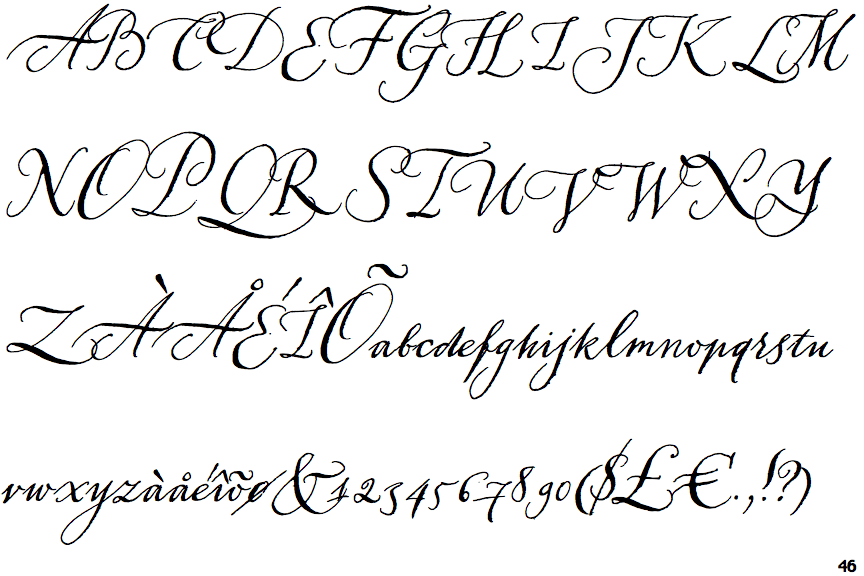 ABCDEFGHIJKLM
NOPQRSTUVWXY
ZÀÅÉÎÕabcdefghijklmnopqrstu
vwxyzàåéîõø&1234567890($£€.,!?)
46